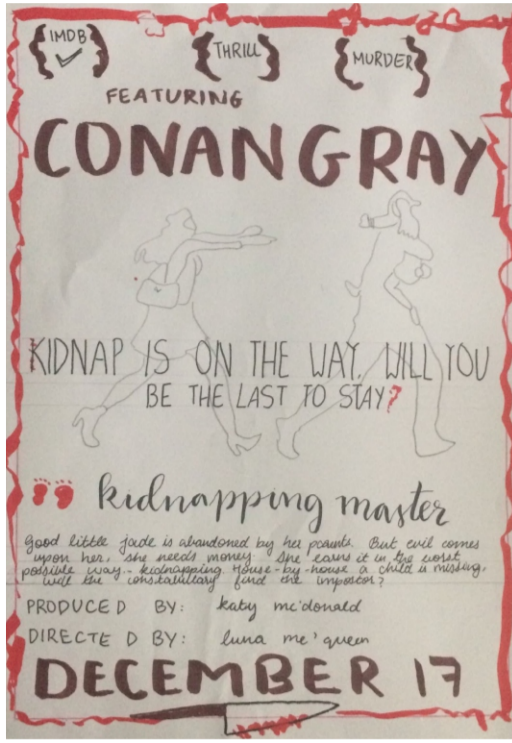 IMDB THRILL MURDER
FEATURING
CONAN GRAY
KIDNAP IS ON THE WAY. WILL YOU
BE THE LAST TO STAY?
kidnapping master
Good little jade is abandoned by her parents. But evil comes
upon her, she needs money. She earns it in the worst
possible way - kidnapping. House-by-house a child is missing,
will the constabullary find the impostor?
PRODUCED BY: katy mc'donald
DIRECTED BY: luna mc'queen
DECEMBER 17